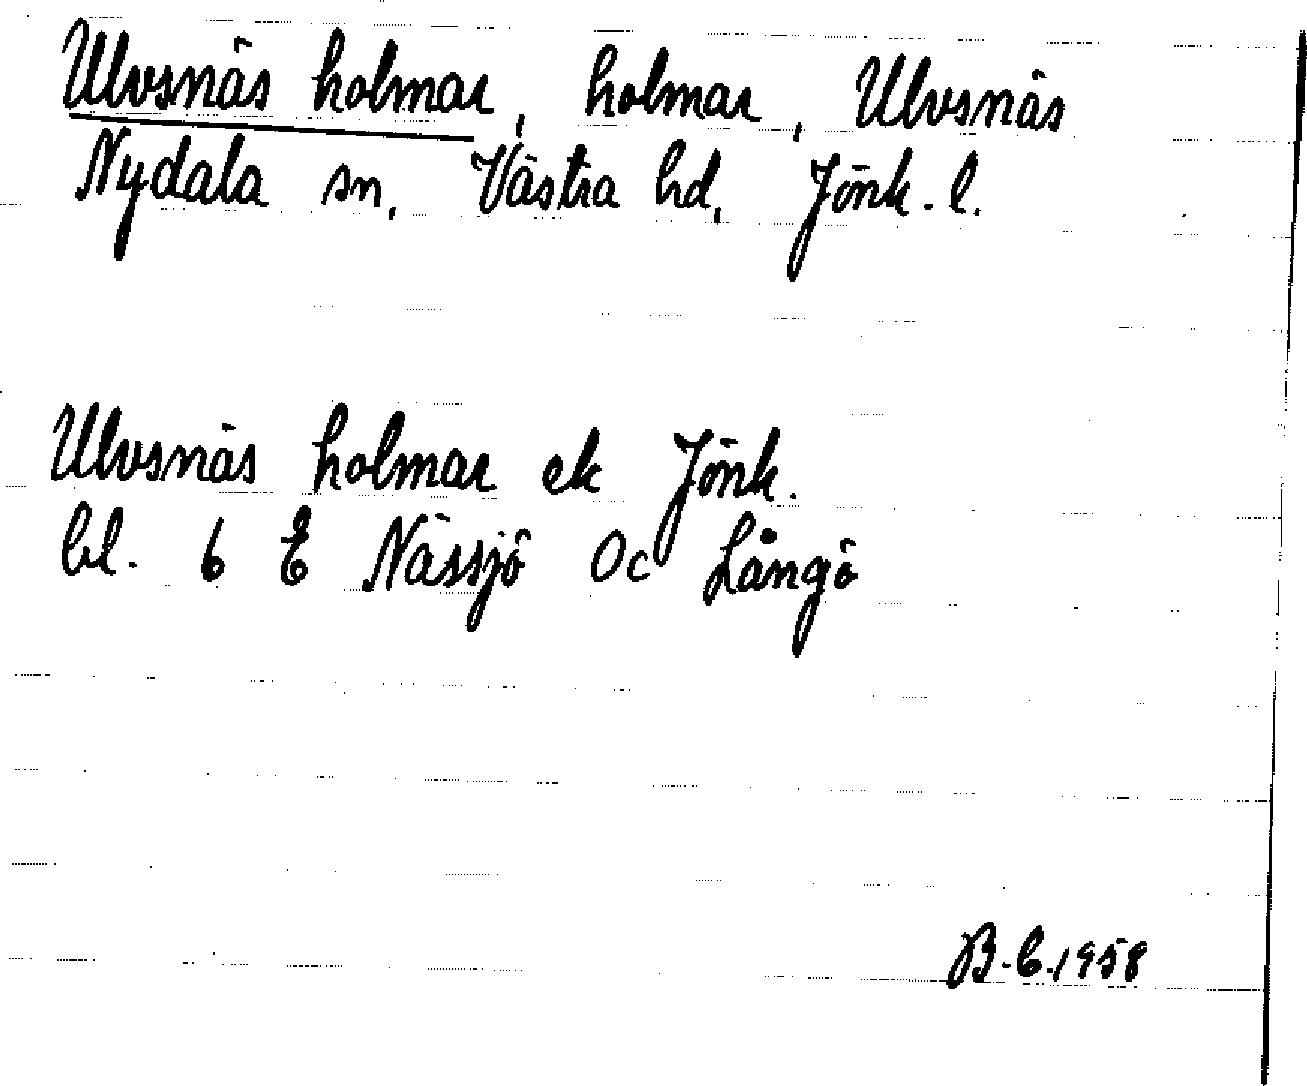 Ulvsnäs holmar, holmar, Ulvsnäs
Nydala sn, Västra hd, Jönk. l.
Ulvsnäs holmar ek Jönk.
bl. 6 E Nässjö Oc Långö
B.E.1958